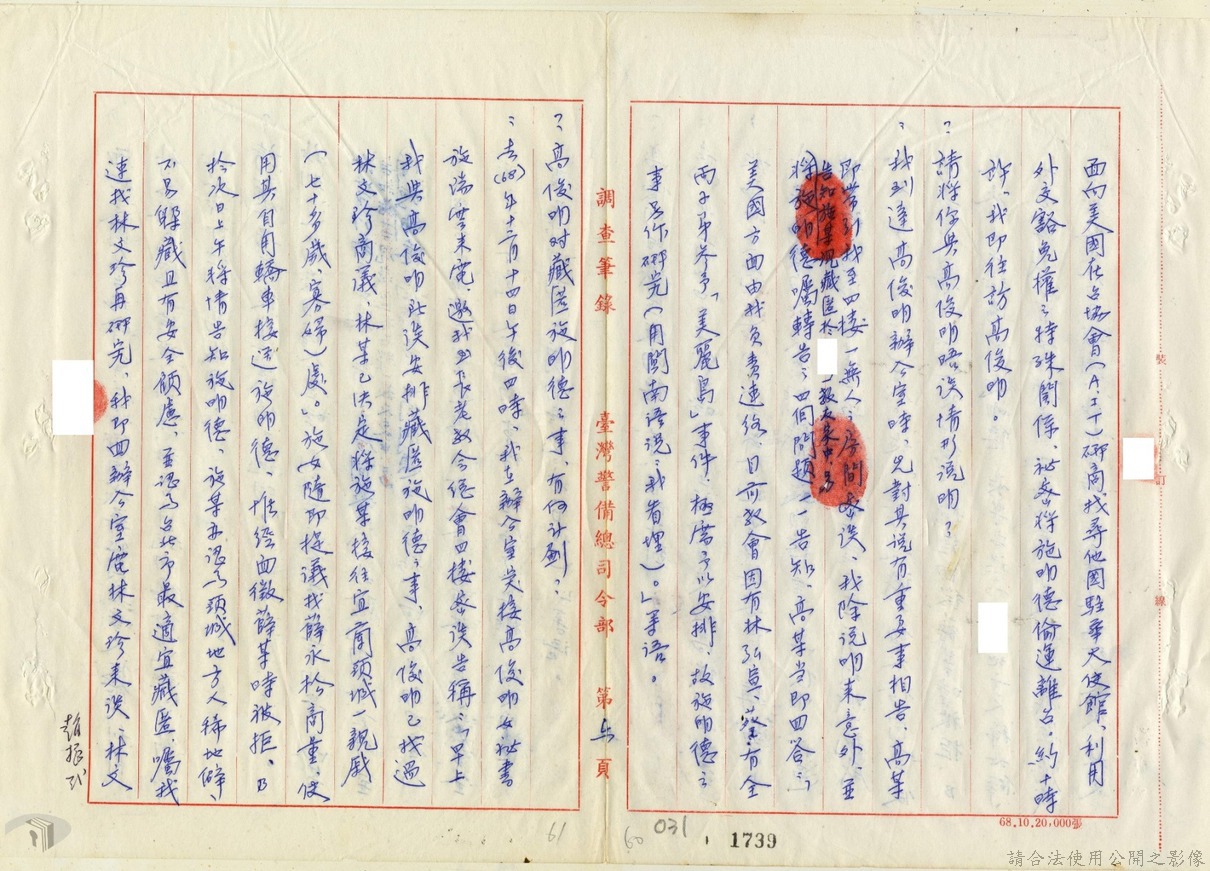 面向美國在台協會(AIT)研商找尋他國駐華大使館、利用
外交豁免權之特殊關係、祕密將施明德偷運離台。約十時
許、我即往訪高俊明。
?請將你與高俊明晤談情形說明?
:我到達高俊明辦公室時、先對其說有重要事相告、高某
即帶引我至四樓一無人之房間密談、我除說明來意外、並
告知施某現藏匿於
將施明德囑轉告之四個問題一一告知、高某當即回答:「
美國方面由我負責連絡、目前教會因有林弘宣、蔡有全
兩子弟參予「美麗島」事件、極應予以安排、故施明德之
事另作研究(用閩南語說:我省埋)。」等語。
調查筆錄 臺灣警備總司令部 第五頁
?高俊明對藏匿施明德之事、有何計劃?
:去(68)年十二月十四日午後四時、我在辦公室突接高俊明女祕書
施瑞雲來電、邀我至長老教會總會四樓密談告稱:「早上
我與高俊明所談安排藏匿施明德之事、高俊明已找過
林文珍商議、林某已決定將施某接往宜蘭頭城一親戚
(七十多歲、寡婦)處。」施女隨即提議找薛永松商量、使
用其自用轎車接送施明德、惟經面徵薛某時被拒、乃
於次日上午將情告知施明德、施某亦認為頭城地方人稀地僻、
不易躲藏且有安全顧慮、並認為台北市最適宜藏匿、囑我
速找林文珍再研究、我即回辦公室電林文珍來談、林文
趙振貳
裝
訂
線
68.10.20,000張
60
031
1739
61
請合法使用公開之影像